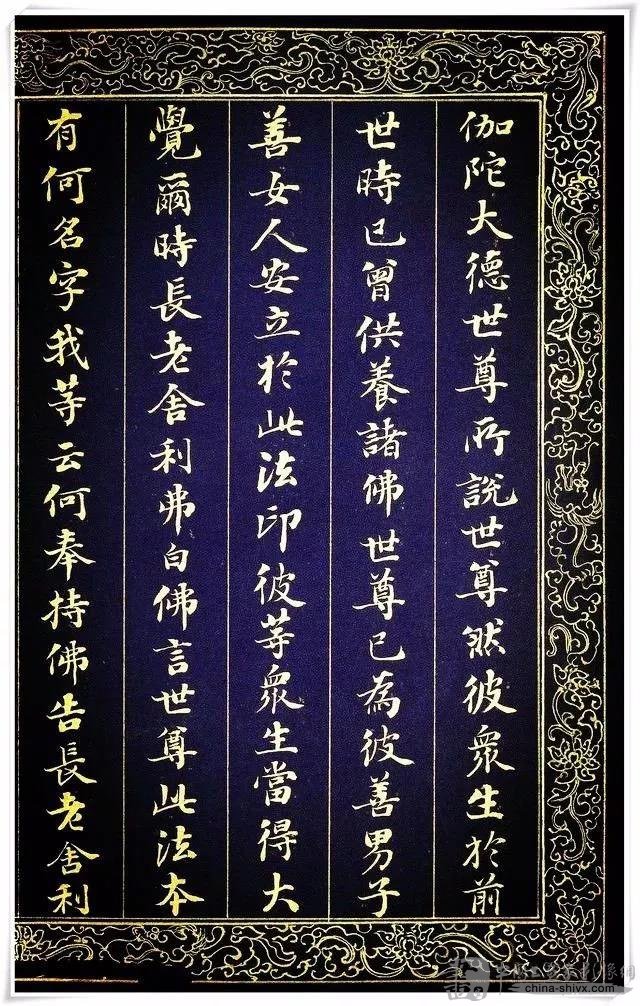 伽陀大德世尊所說世尊然彼眾生於前
世時已曾供養諸佛世尊已為彼善男子
善女人安立於此法印彼等眾生當得大
覺爾時長老舍利弗白佛言世尊此法本
有何名字我等云何奉持佛告長老舍利
china-shivx.com